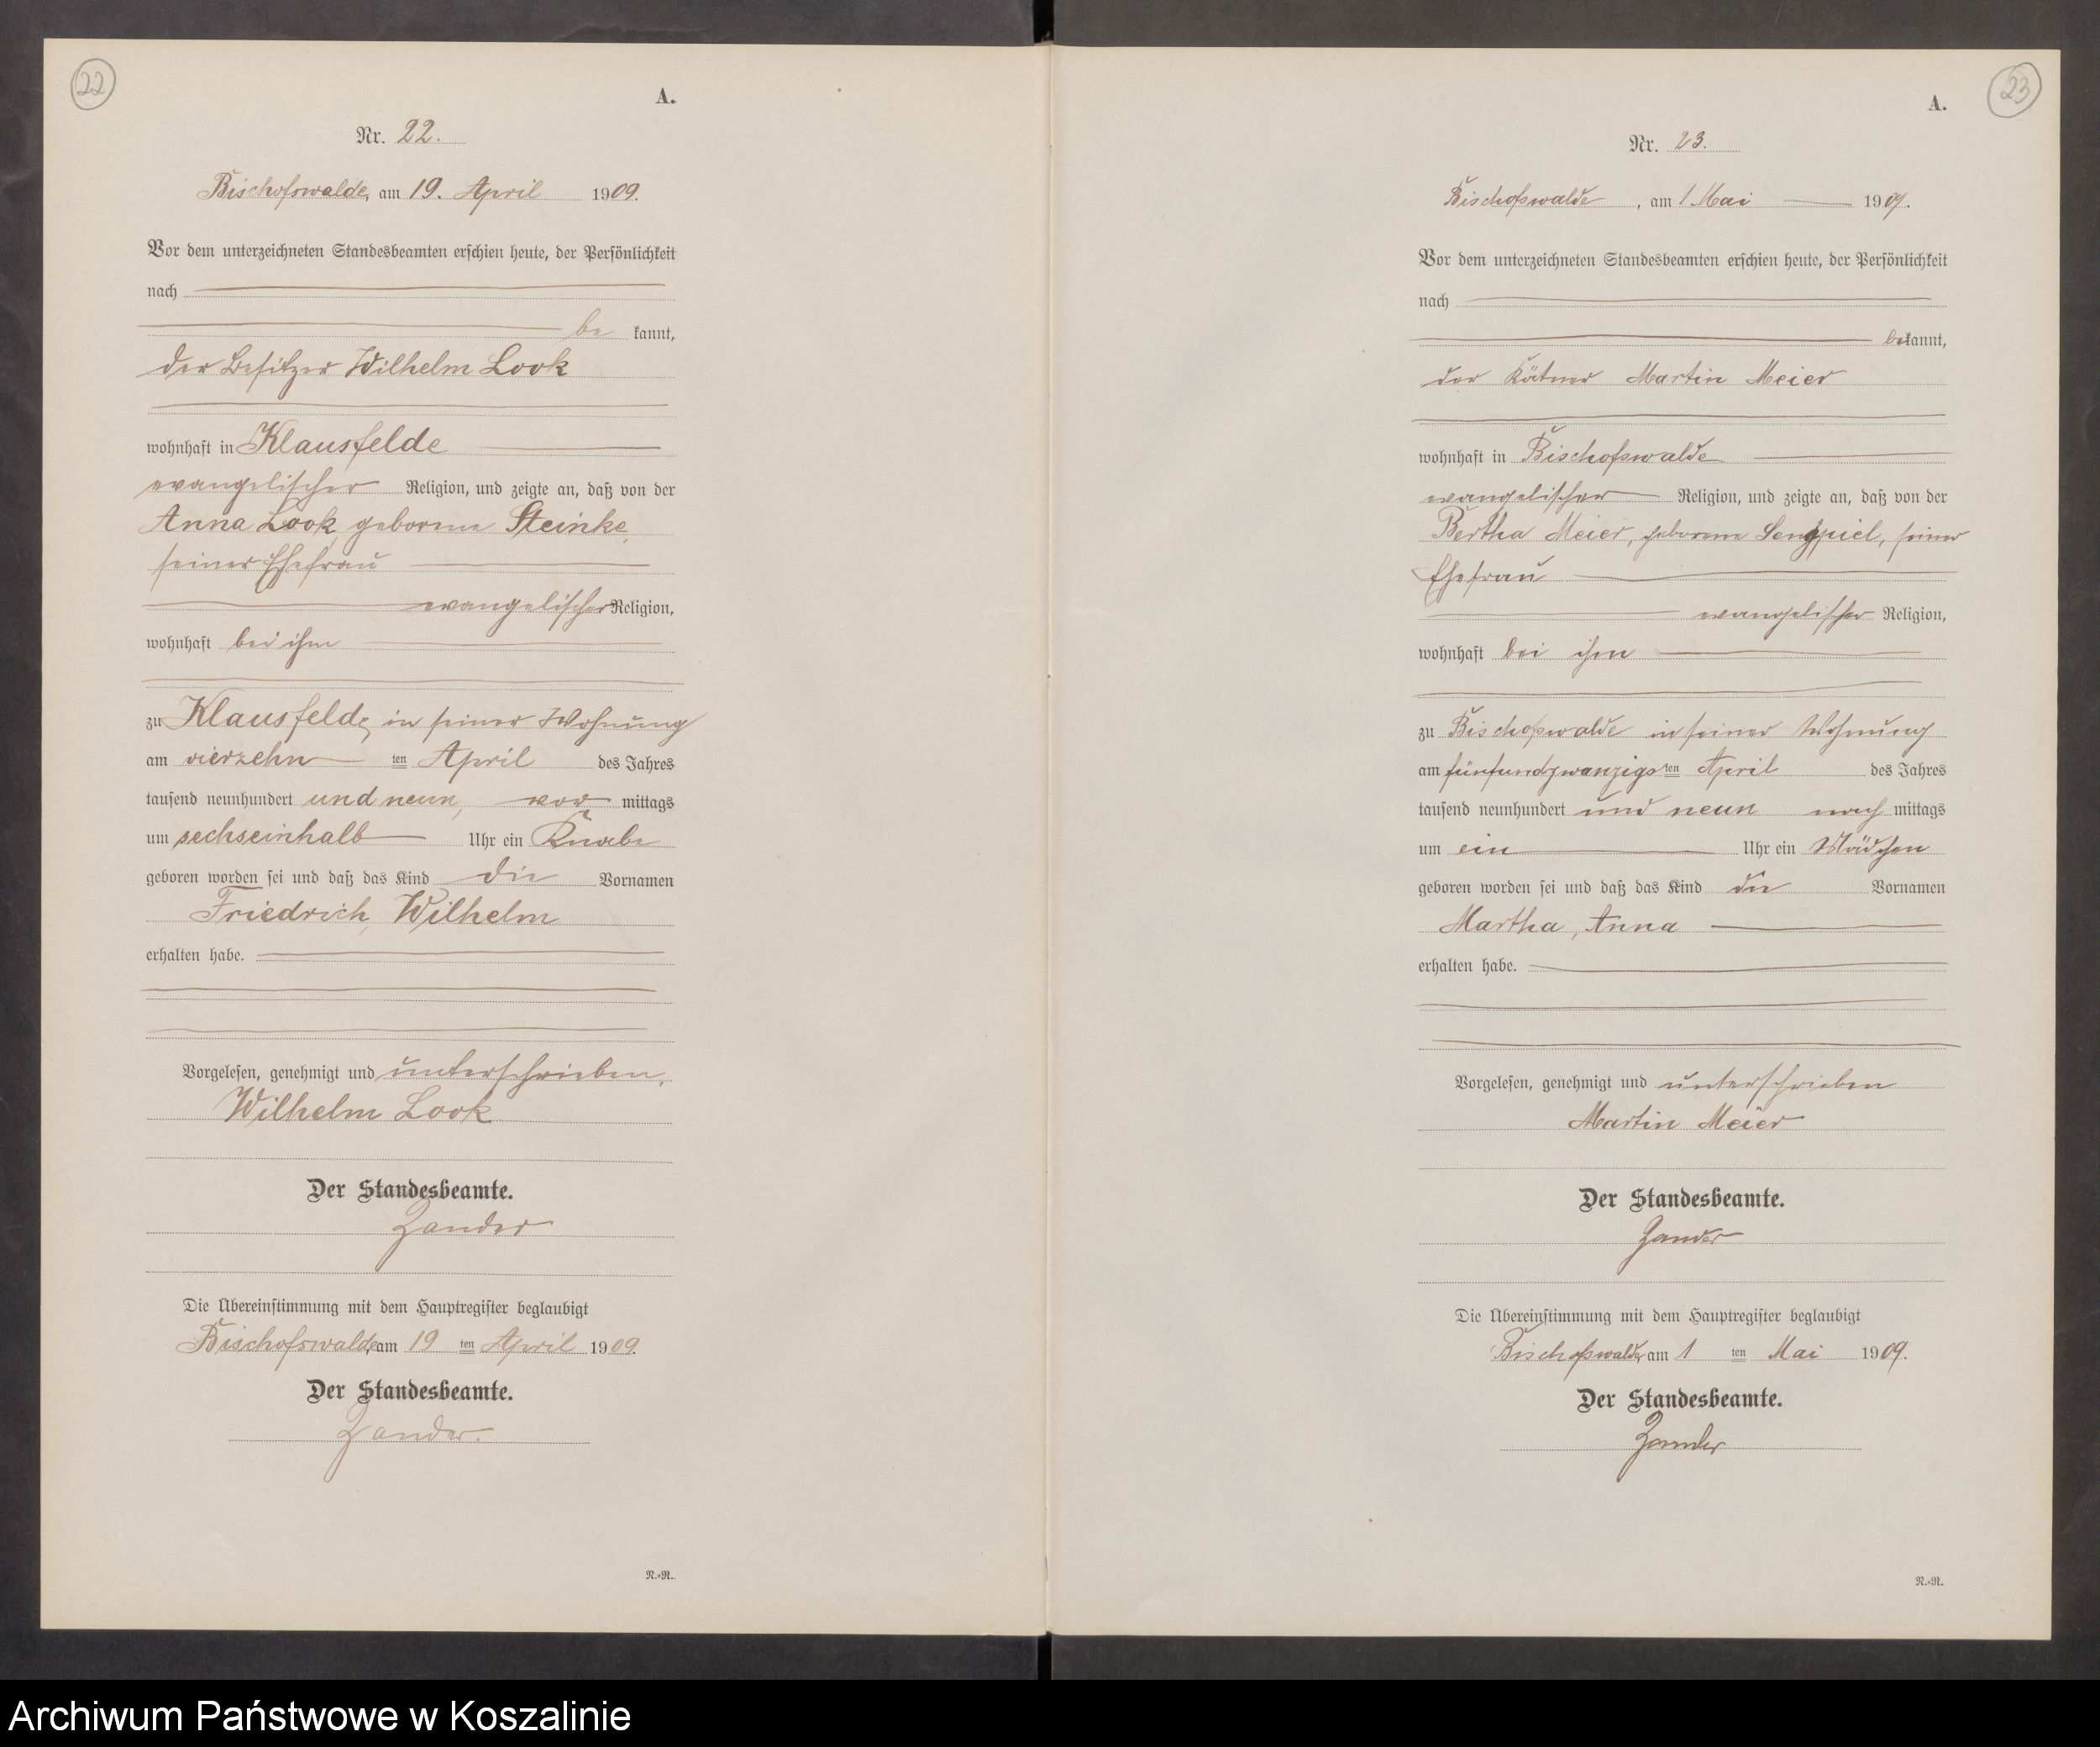 22
A.
Nr. 22.
Bischofswalde, am 19. April 1909.
Vor dem unterzeichneten Standesbeamten erschien heute, der Persönlichkeit
nach
be kannt,
der Besitzer Wilhelm Look
wohnhaft in Klausfelde
evangelischer Religion, und zeigte an, daß von der
Anna Look, geborene Steinke,
seiner Ehefrau
evangelischer Religion,
wohnhaft bei ihm
zu Klausfelde, in seiner Wohnung
am vierzehn ten April des Jahres
tausend neunhundert und neun, vor mittags
um sechseinhalb Uhr ein Knabe
geboren worden sei und daß das Kind die Vornamen
Friedrich, Wilhelm
erhalten habe.
Vorgelesen, genehmigt und unterschrieben,
Wilhelm Look
Der Standesbeamte.
Zander
Die Übereinstimmung mit dem Hauptregister beglaubigt
Bischofswalde, am 19 ten April 1909.
Der Standesbeamte.
Zander.
N.=R.
23
A.
Nr. 23.
Bischofswalde, am 1 Mai 1909.
Vor dem unterzeichneten Standesbeamten erschien heute, der Persönlichkeit
nach
bekannt,
der Kätner Martin Meier
wohnhaft in Bischofswalde
evangelischer Religion, und zeigte an, daß von der
Bertha Meier, geborene Sengpiel, seiner
Ehefrau
evangelischer Religion,
wohnhaft bei ihm
zu Bischofswalde in seiner Wohnung
am fünfundzwanzigsten April des Jahres
tausend neunhundert und neun nach mittags
um ein Uhr ein Mädchen
geboren worden sei und daß das Kind die Vornamen
Martha, Anna
erhalten habe.
Vorgelesen, genehmigt und unterschrieben
Martin Meier
Der Standesbeamte.
Zander
Die Übereinstimmung mit dem Hauptregister beglaubigt
Bischofswalde, am 1 ten Mai 1909.
Der Standesbeamte.
Zander
N.=R.
Archiwum Państwowe w Koszalinie